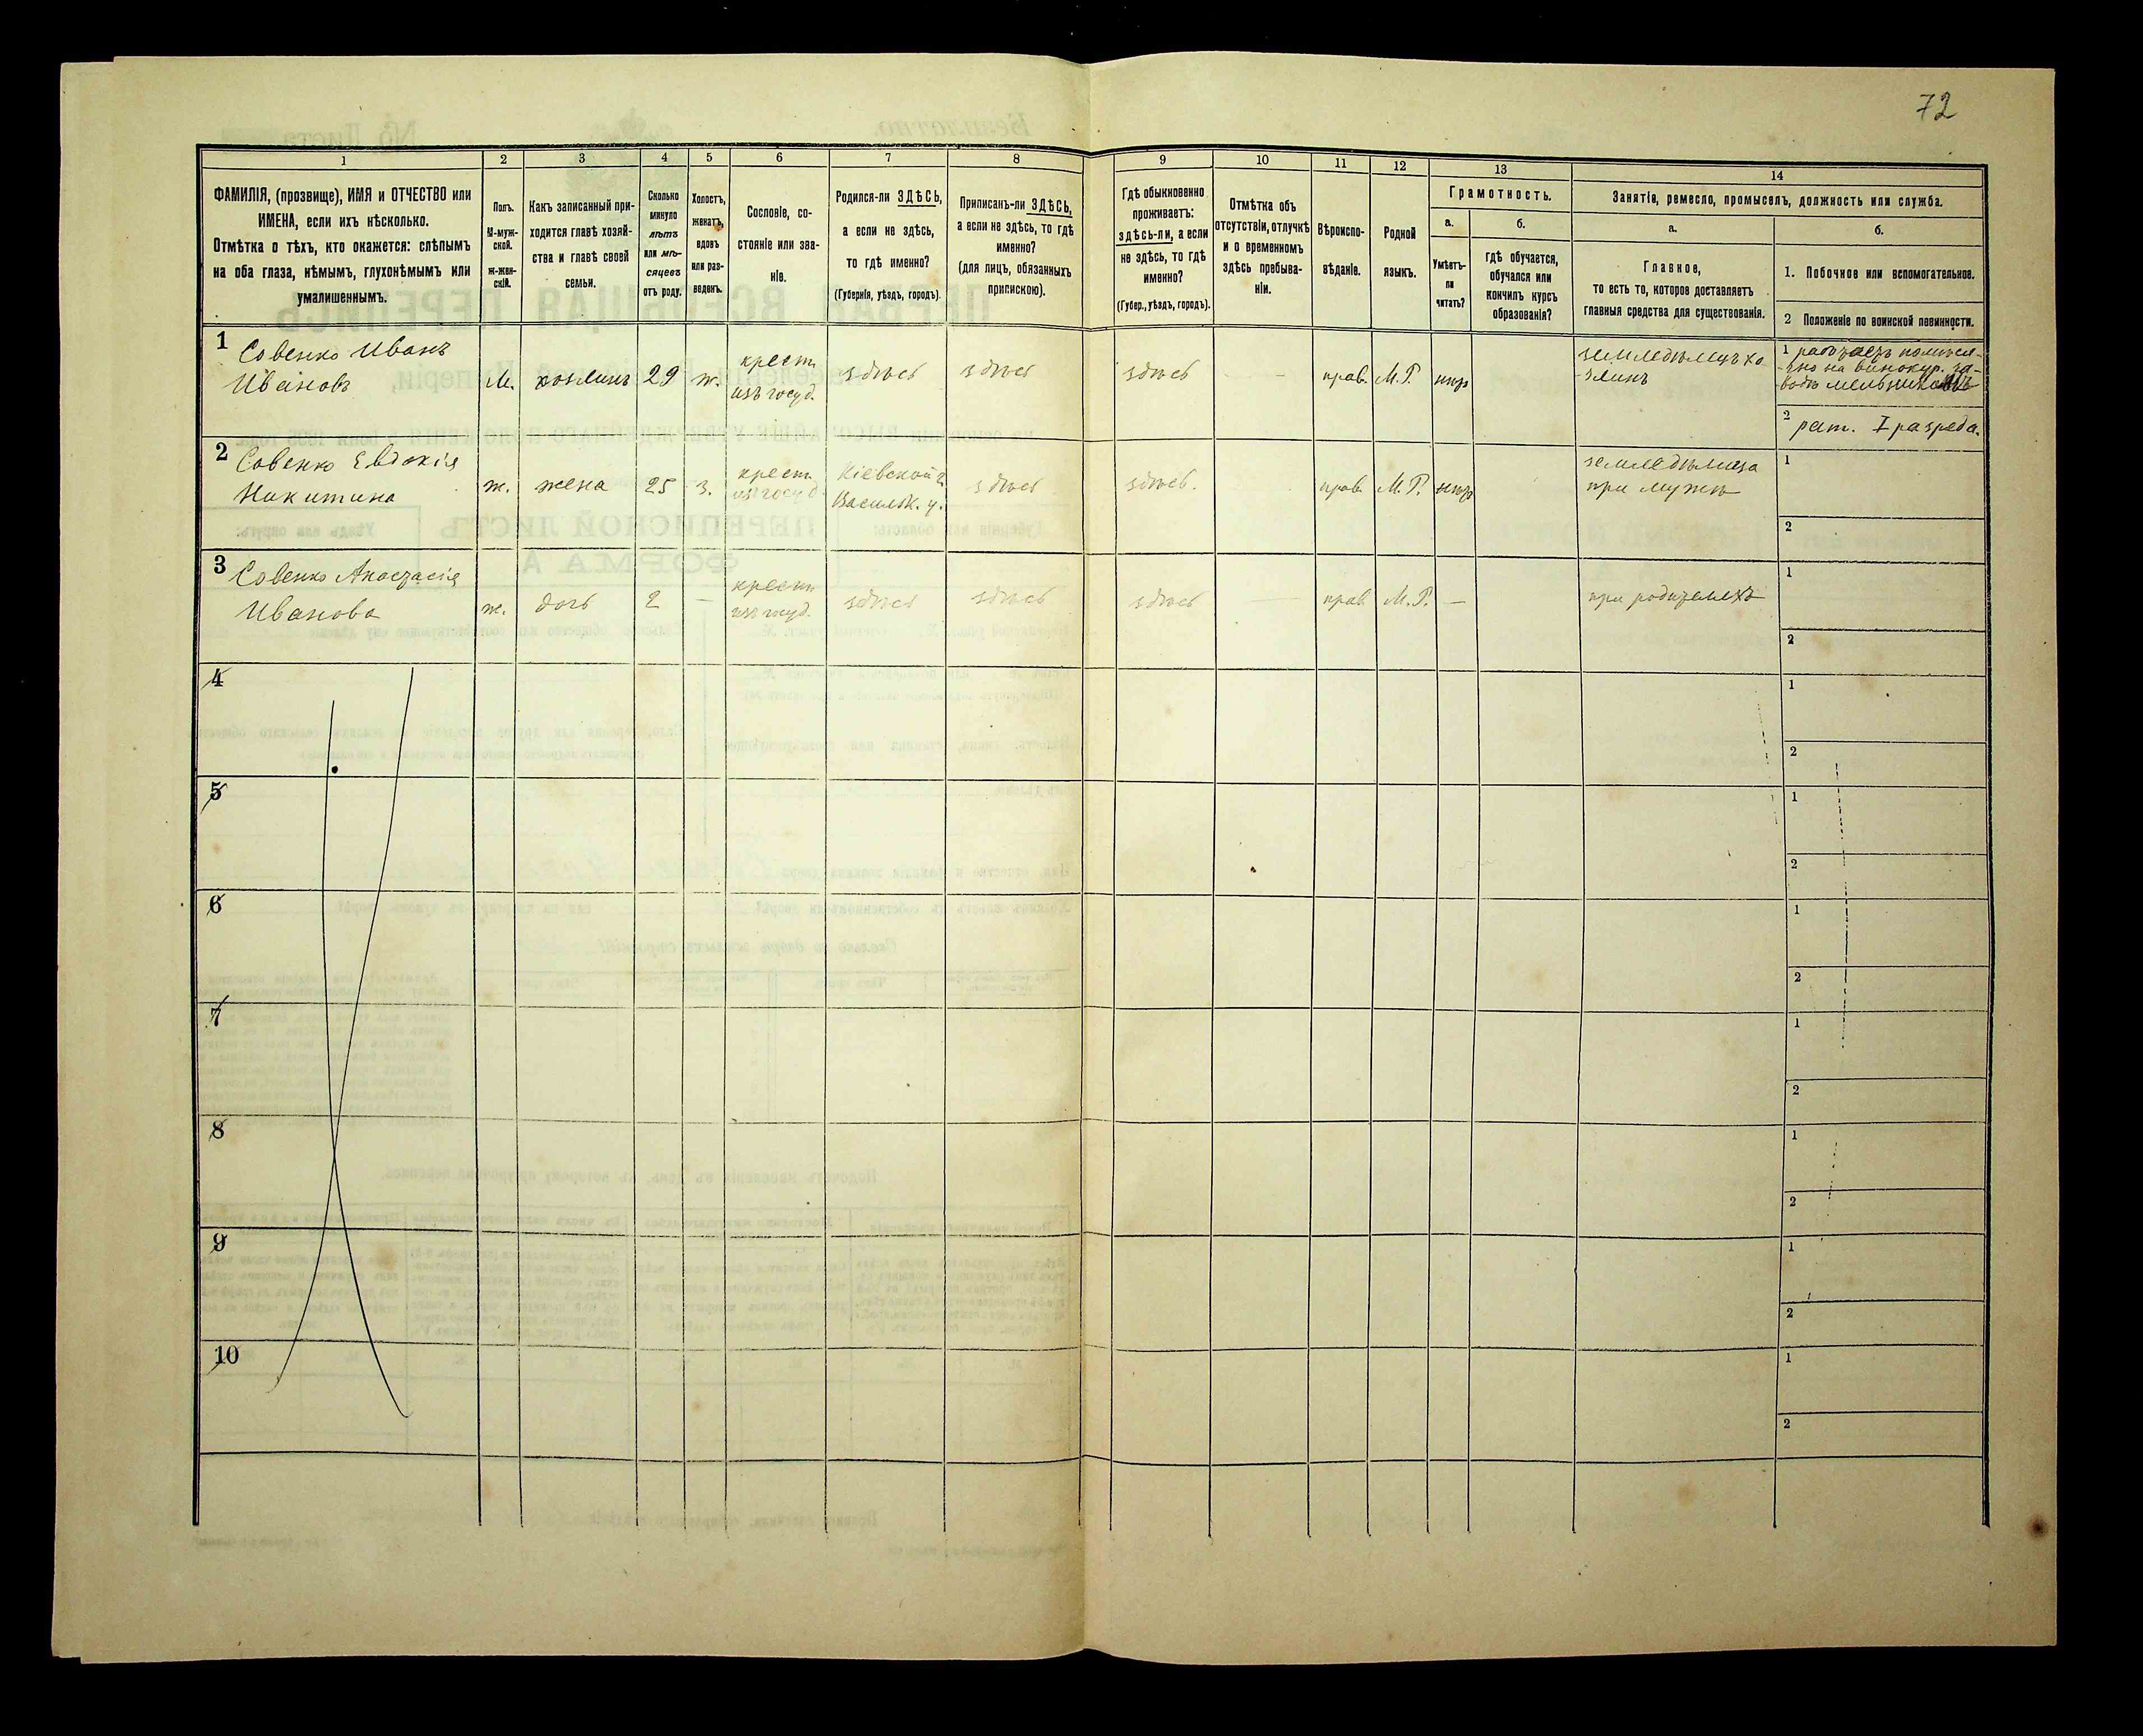 72
1
2
3
4
5
6
7
8
9
10
11
12
13
14
ФАМИЛІЯ, (прозвище), ИМЯ и ОТЧЕСТВО или
ИМЕНА, если ихъ нѣсколько.
Отмѣтка о тѣхъ, кто окажется: слѣпымъ
на оба глаза, нѣмымъ, глухонѣмымъ или
умалишеннымъ.
Полъ.
М-муж-
ской.
ж-жен-
скій.
Какъ записанный при-
ходится главѣ хозяй-
ства и главѣ своей
семьи.
Сколько
минуло
лѣтъ
или мѣ-
сяцевъ
отъ роду.
Холостъ,
женатъ,
вдовъ
или раз-
веденъ.
Сословіе, со-
стояніе или зва-
ніе.
Родился-ли ЗДѢСЬ,
а если не здѣсь,
то гдѣ именно?
(Губернія, уѣздъ, городъ).
Приписанъ-ли ЗДѢСЬ,
а если не здѣсь, то гдѣ
именно?
(для лицъ, обязанныхъ
припискою).
Гдѣ обыкновенно
проживаетъ:
здѣсь-ли, а если
не здѣсь, то гдѣ
именно?
(Губер., уѣздъ, городъ).
Отмѣтка объ
отсутствіи, отлучкѣ
и о временномъ
здѣсь пребыва-
ніи.
Вѣроиспо-
вѣданіе.
Родной
языкъ.
Грамотность.
а.
Умѣетъ-
ли
читать?
б.
гдѣ обучается,
обучался или
кончилъ курсъ
образованія?
Занятіе, ремесло, промыселъ, должность или служба.
а.
Главное,
то есть то, которое доставляетъ
главныя средства для существованія.
б.
1. Побочное или вспомогательное.
2 Положеніе по воинской повинности.
1
Совенко Иванъ
Ивановъ
М.
хозяинъ
29
ж.
крест.
изъ госуд.
здѣсь
здѣсь
здѣсь
—
прав.
М.Р.
нѣтъ
земледѣлецъ хо
зяинъ
1
на винокур. за-
водѣ
2
рат. I разряда.
2
Совенко Евдокія
Никитина
ж.
жена
25
з.
крест.
изъ госуд.
Кіевской г.
Васильк. у.
здѣсь
здѣсь.
прав.
М.Р.
нѣтъ
земледѣлица
при мужѣ
1
2
3
Совенко Анастасія
Иванова
ж.
дочь
2
—
крест.
изъ госуд.
здѣсь
здѣсь
здѣсь
—
прав.
М.Р.
—
при родителяхъ
1
2
4
1
2
5
1
2
6
1
2
7
1
2
8
1
2
9
1
2
10
1
2